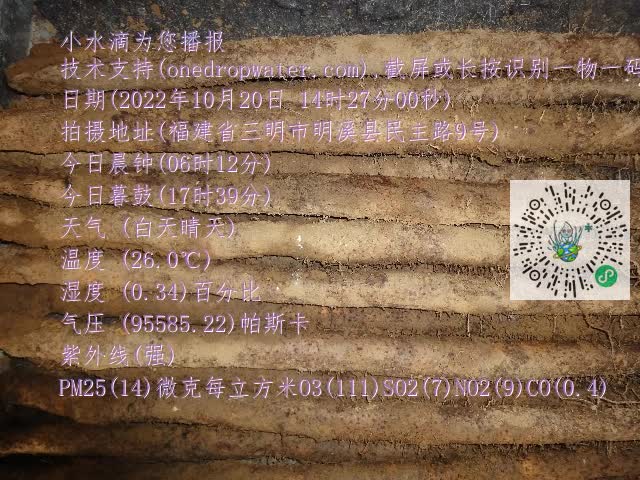 小水滴为您播报
技术支持(onedropwater.com),截屏或长按识别一物一码
日期(2022年10月20日 14时27分00秒)
拍摄地址(福建省三明市明溪县民主路9号)
今日晨钟(06时12分)
今日暮鼓(17时39分)
天气 (白天晴天)
温度 (26.0℃)
湿度 (0.34)百分比
气压 (95585.22)帕斯卡
紫外线(强)
PM25(14)微克每立方米O3(111)SO2(7)NO2(9)CO(0.4)